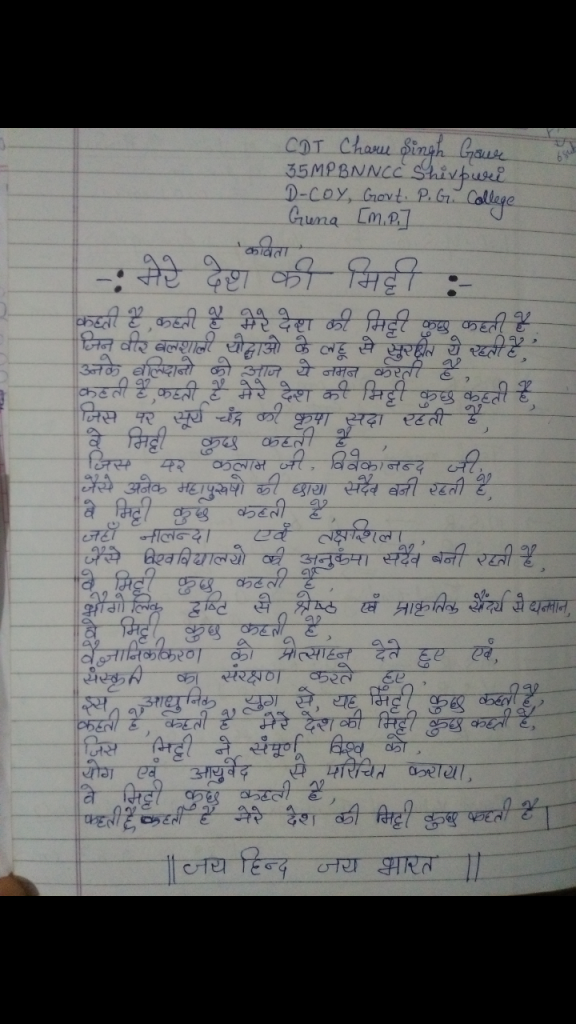 CDT Charu Singh Gaur
35MPBNNCC Shivpuri
D-COY, Govt. P.G. College
Guna [M.P.]
'कविता'
-: मेरे देश की मिट्टी :-
कहती है, कहती है मेरे देश की मिट्टी कुछ कहती है,
जिन वीर बलशाली योद्धाओ के लहू से सुरक्षित ये रहती है,
उनके बलिदानो को आज ये नमन करती है,
कहती है, कहती है मेरे देश की मिट्टी कुछ कहती है,
जिस पर सूर्य चंद्र की कृपा सदा रहती है,
वे मिट्टी कुछ कहती है,
जिस पर कलाम जी, विवेकानन्द जी,
जैसे अनेक महापुरुषो की छाया सदैव बनी रहती है,
वे मिट्टी कुछ कहती है,
जहाँ नालन्दा एवं तक्षशिला,
जैसे विश्वविद्यालयो की अनुकंपा सदैव बनी रहती है,
वे मिट्टी कुछ कहती है,
भौगोलिक दृष्टि से श्रेष्ठ एवं प्राकृतिक सौंदर्य से धनमान,
वे मिट्टी कुछ कहती है,
वैज्ञानिकीकरण को प्रोत्साहन देते हुए एवं,
संस्कृती का संरक्षण करते हुए,
इस आधुनिक युग से, यह मिट्टी कुछ कहती है,
कहती है, कहती है मेरे देश की मिट्टी कुछ कहती है,
जिस मिट्टी ने संपूर्ण विश्व को,
योग एवं आयुर्वेद से परिचित कराया,
वे मिट्टी कुछ कहती है,
कहती है, कहती है मेरे देश की मिट्टी कुछ कहती है।
|| जय हिन्द जय भारत ||